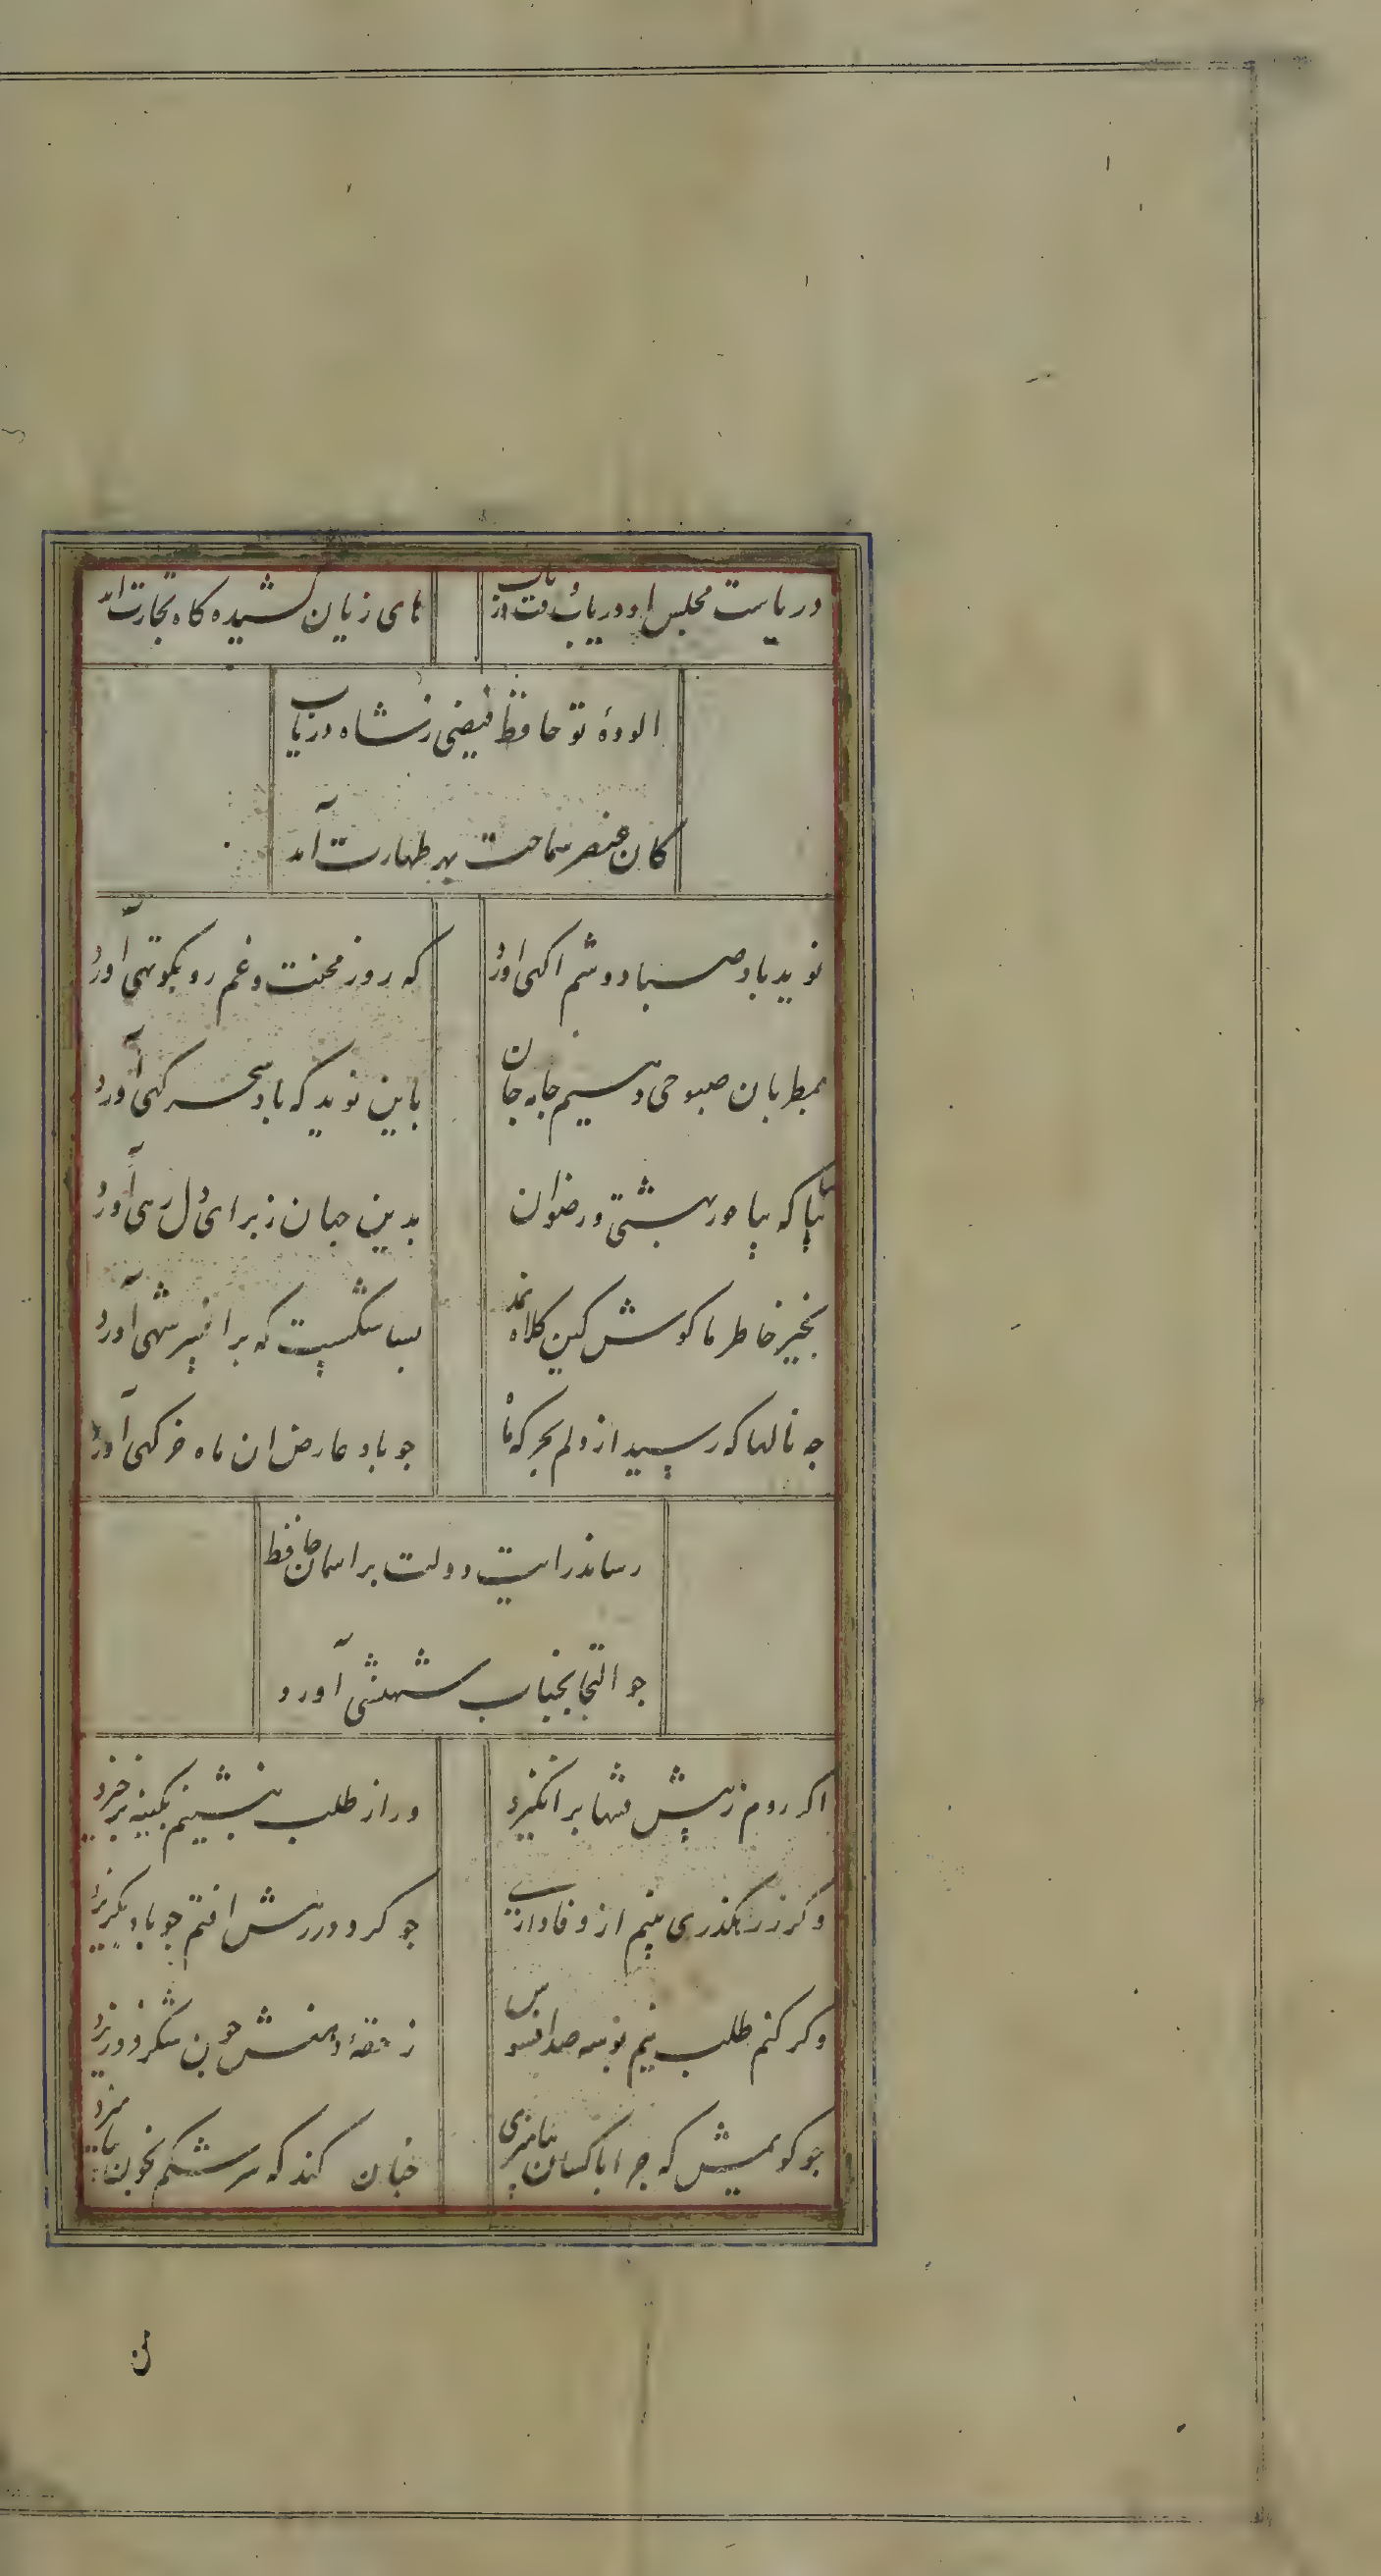 دریاست مجلس او دریاب وقت و دریاب
های زیان کشیده کاه تجارت آمد
الودهٔ تو حافظ فیضی زشاه دریاب
کان عنصر سماحت بهر طهارت آمد
نوید باد صبا دوشم اکهی آورد
که روز محنت و غم رو بکوتهی آورد
بمطربان صبوحی دهیم جامه جان
باین نوید که باد سحرکهی آورد
بیا بیا که حور بهشتی و رضوان
بدین جهان ز برای دل رهی آورد
بخیر خاطر ما کوش کین کلاه نمد
بسا شکست که بر افسر شهی آورد
چه نالها که رسید از دلم بخرکه ماه
جو یاد عارض ان ماه خرکهی آورد
رساند رایت دولت بر اسمان حافظ
جو التجا بجناب شهنشهی آورد
اکر روم ز پیش فتنها بر انکیزد
ور از طلب بنشینم بکینه بر خیزد
و کر در رهکذری بینم از وفاداری
جو کرد در رهش افتم جو باد بکریزد
و کر کنم طلب نیم بوسه صد افسوس
ز حقهٔ دهنش جون شکر فرو ریزد
جو کویمش که جرا با کسان بیامیزی
جنان کند که سرشکم بخون بیامیزد